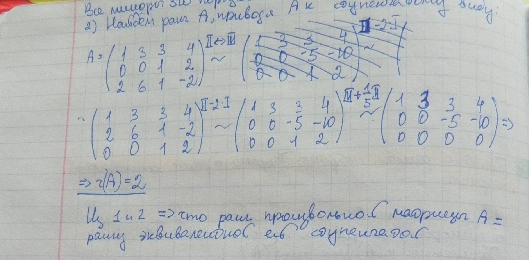 Все миноры 3го поряд
2) Найдём ранг A, приводя A к ступенчатому виду:
A = (1 3 3 4; 0 0 1 2; 2 6 1 -2) II↔III ~ (1 3 3 4; 0 0 -5 -10; 0 0 1 2) II-2·I ~
~ (1 3 3 4; 2 6 1 -2; 0 0 1 2) II-2·I ~ (1 3 3 4; 0 0 -5 -10; 0 0 1 2) III+1/5 II ~ (1 3 3 4; 0 0 -5 -10; 0 0 0 0) ⇒
⇒ r(A) = 2
Из 1 и 2 ⇒ что ранг произвольной матрицы A =
рангу эквивалентной ей ступенчатой